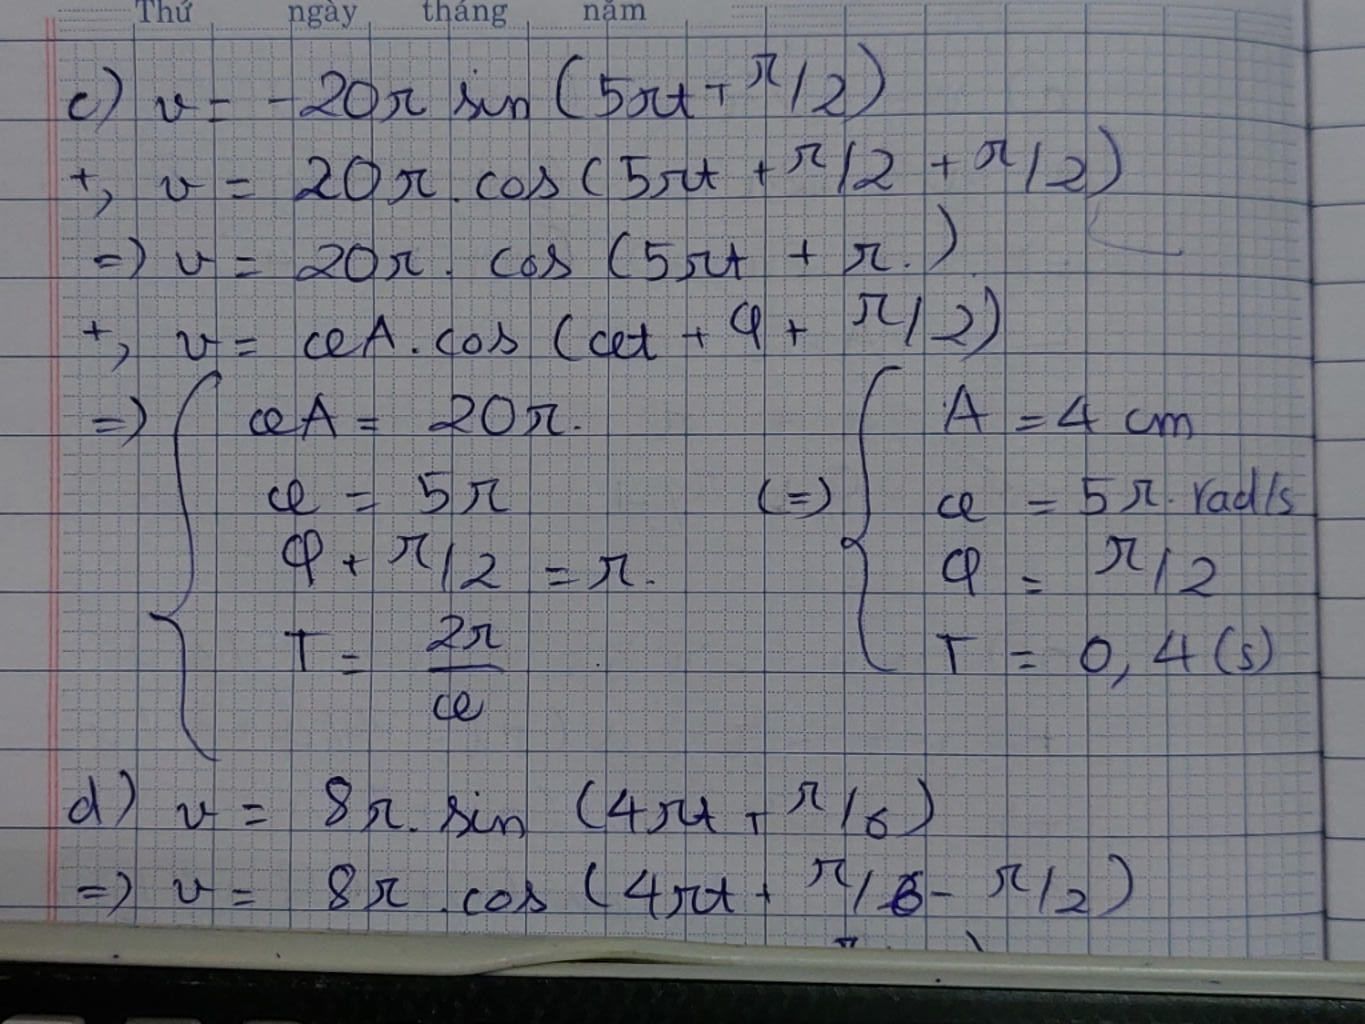 Thứ ngày tháng năm
c) v = -20π sin (5πt + π/2)
+, v = 20π. cos (5πt + π/2 + π/2)
=) v = 20π. cos (5πt + π.)
+, v = ωA. cos (ωt + φ + π/2)
=) { ωA = 20π. (=) { A = 4 cm
ω = 5π ω = 5π. rad/s
φ + π/2 = π. φ = π/2
T = 2π/ω T = 0,4 (s)
d) v = 8π. sin (4πt + π/6)
=) v = 8π. cos (4πt + π/6 - π/2)